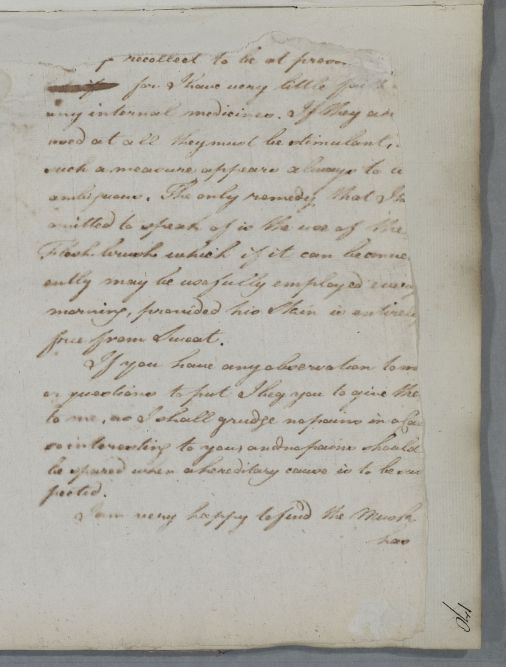 recollect to be at presen
for I have very little faith
any internal medicines. If they are
used at all they must be stimulant,
such a measure appears always to
ambiguous. The only remedy that I
omitted to speak of is the use of the
Flesh brush which if it can be conve
ently may be usefully employed every
morning, provided his Skin is entirely
free from Sweat.
If you have any observation to
or questions to put I beg you to give the
to me, as I shall grudge no pains in a Case
so interesting to you and no pains should
be spared when a hereditary cause is to be sus
pected.
I am very happy to find the Musk
has